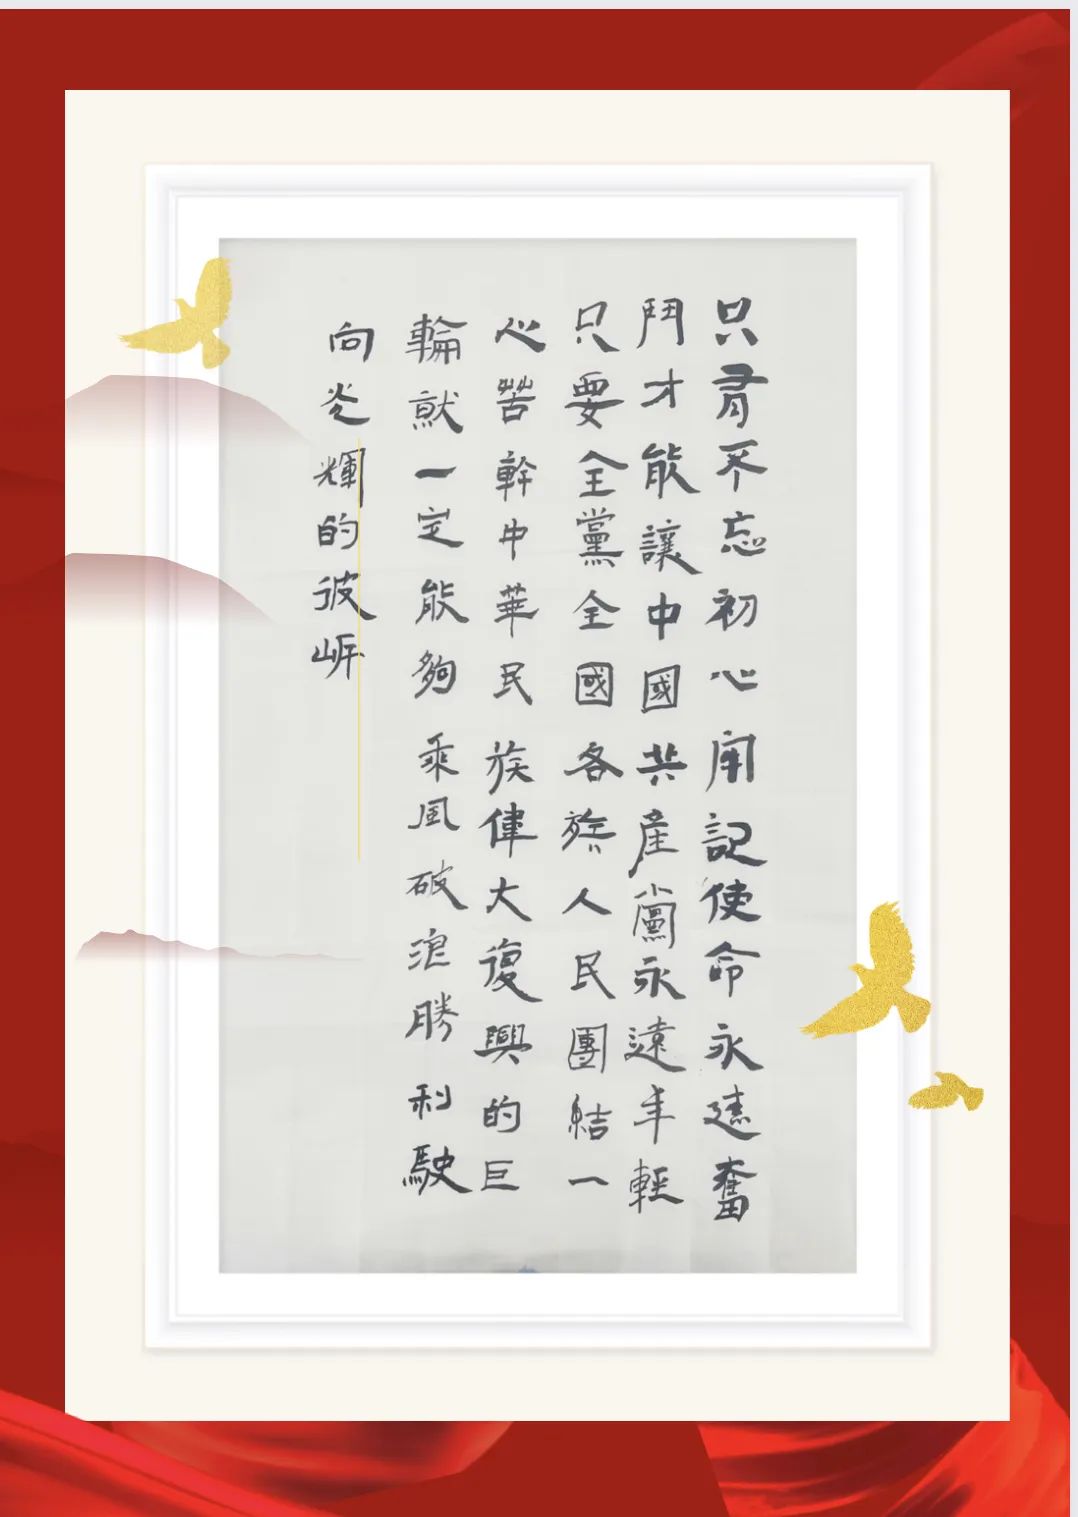 只有不忘初心闹記使命永遠奮
鬥才能讓中國共產黨永遠年輕
只要全黨全國各族人民團結一
心苦幹中華民族偉大復興的巨
輪就一定能夠乘風破浪勝利駛
向光輝的彼岸